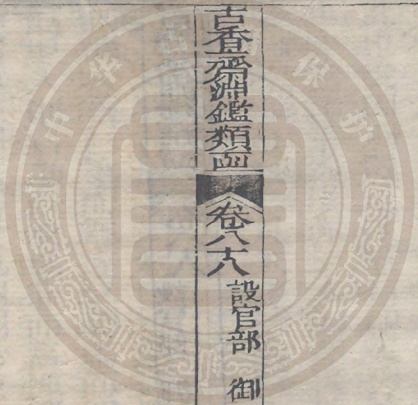 古香齋淵鑑類函
卷八十八
設官部 御